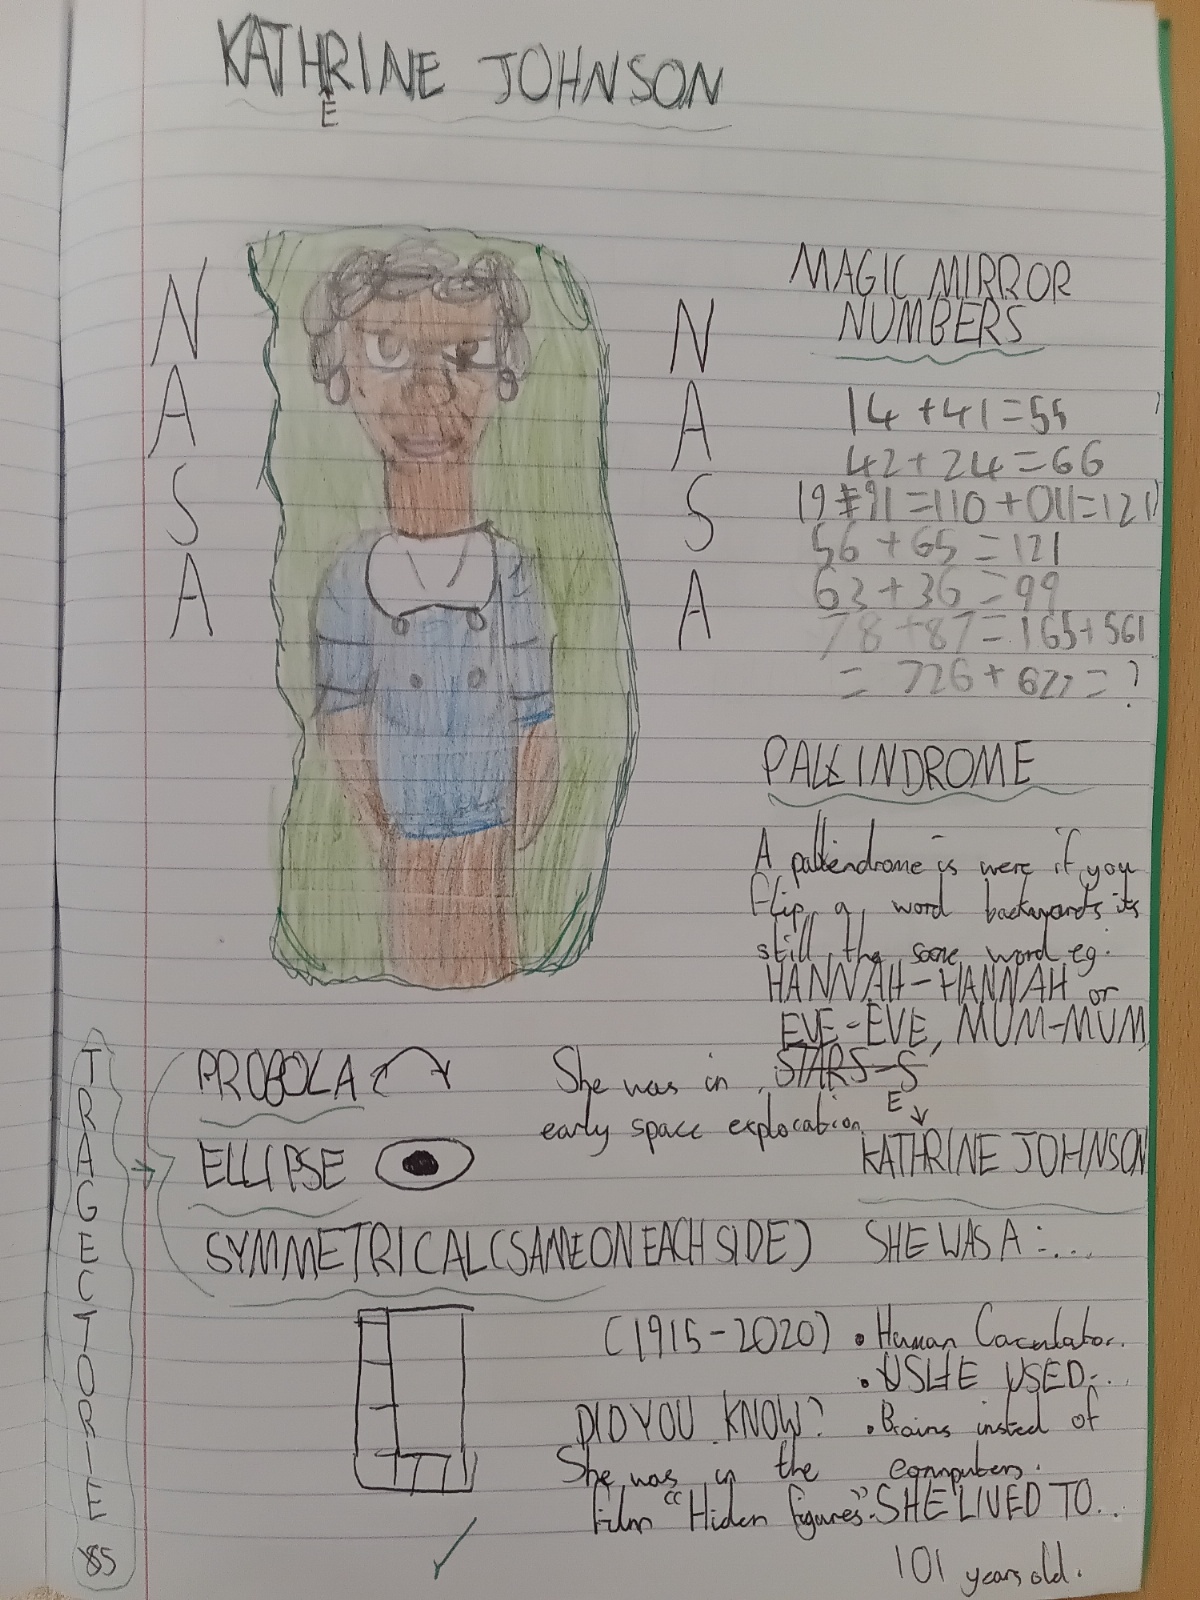 KATHRINE JOHNSON
E
N
A
S
A
N
A
S
A
MAGIC MIRROR
NUMBERS
14 + 41 = 55
42 + 24 = 66
19 + 91 = 110 + 011 = 121
56 + 65 = 121
63 + 36 = 99
78 + 87 = 165 + 561
= 726 + 627 = ?
PALINDROME
A palindrome is were if you
flip a word backwards its
still the same word eg.
HANNAH - HANNAH or
EVE - EVE, MUM - MUM
STARS - S
She was in
early space exploration
T
R
A
G
E
C
T
O
R
I
E
S
PROBOLA
ELLIPSE
SYMMETRICAL (SAME ON EACH SIDE)
E
KATHRINE JOHNSON
SHE WAS A :...
(1915 - 2020)
• Human Caculator.
• SHE USED...
• Brains insted of
computers.
DID YOU KNOW?
She was in the
film "Hiden figures".
SHE LIVED TO...
101 years old.